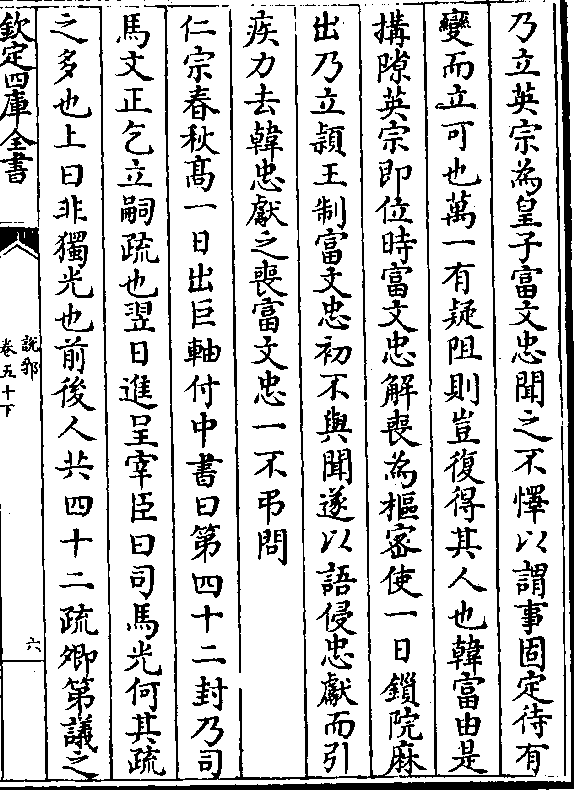 乃立英宗為皇子富文忠聞之不懌以謂事固定待有
變而立可也萬一有疑阻則豈復得其人也韓富由是
搆隙英宗即位時富文忠解喪為樞密使一日鎖院麻
出乃立潁王制富文忠初不與聞遂以語侵忠獻而引
疾力去韓忠獻之喪富文忠一不弔問
仁宗春秋髙一日出巨軸付中書曰第四十二封乃司
馬文正乞立嗣疏也翌日進呈宰臣曰司馬光何其疏
之多也上曰非獨光也前後人共四十二疏卿第議之
欽定四庫全書
說郛
卷五十下
六